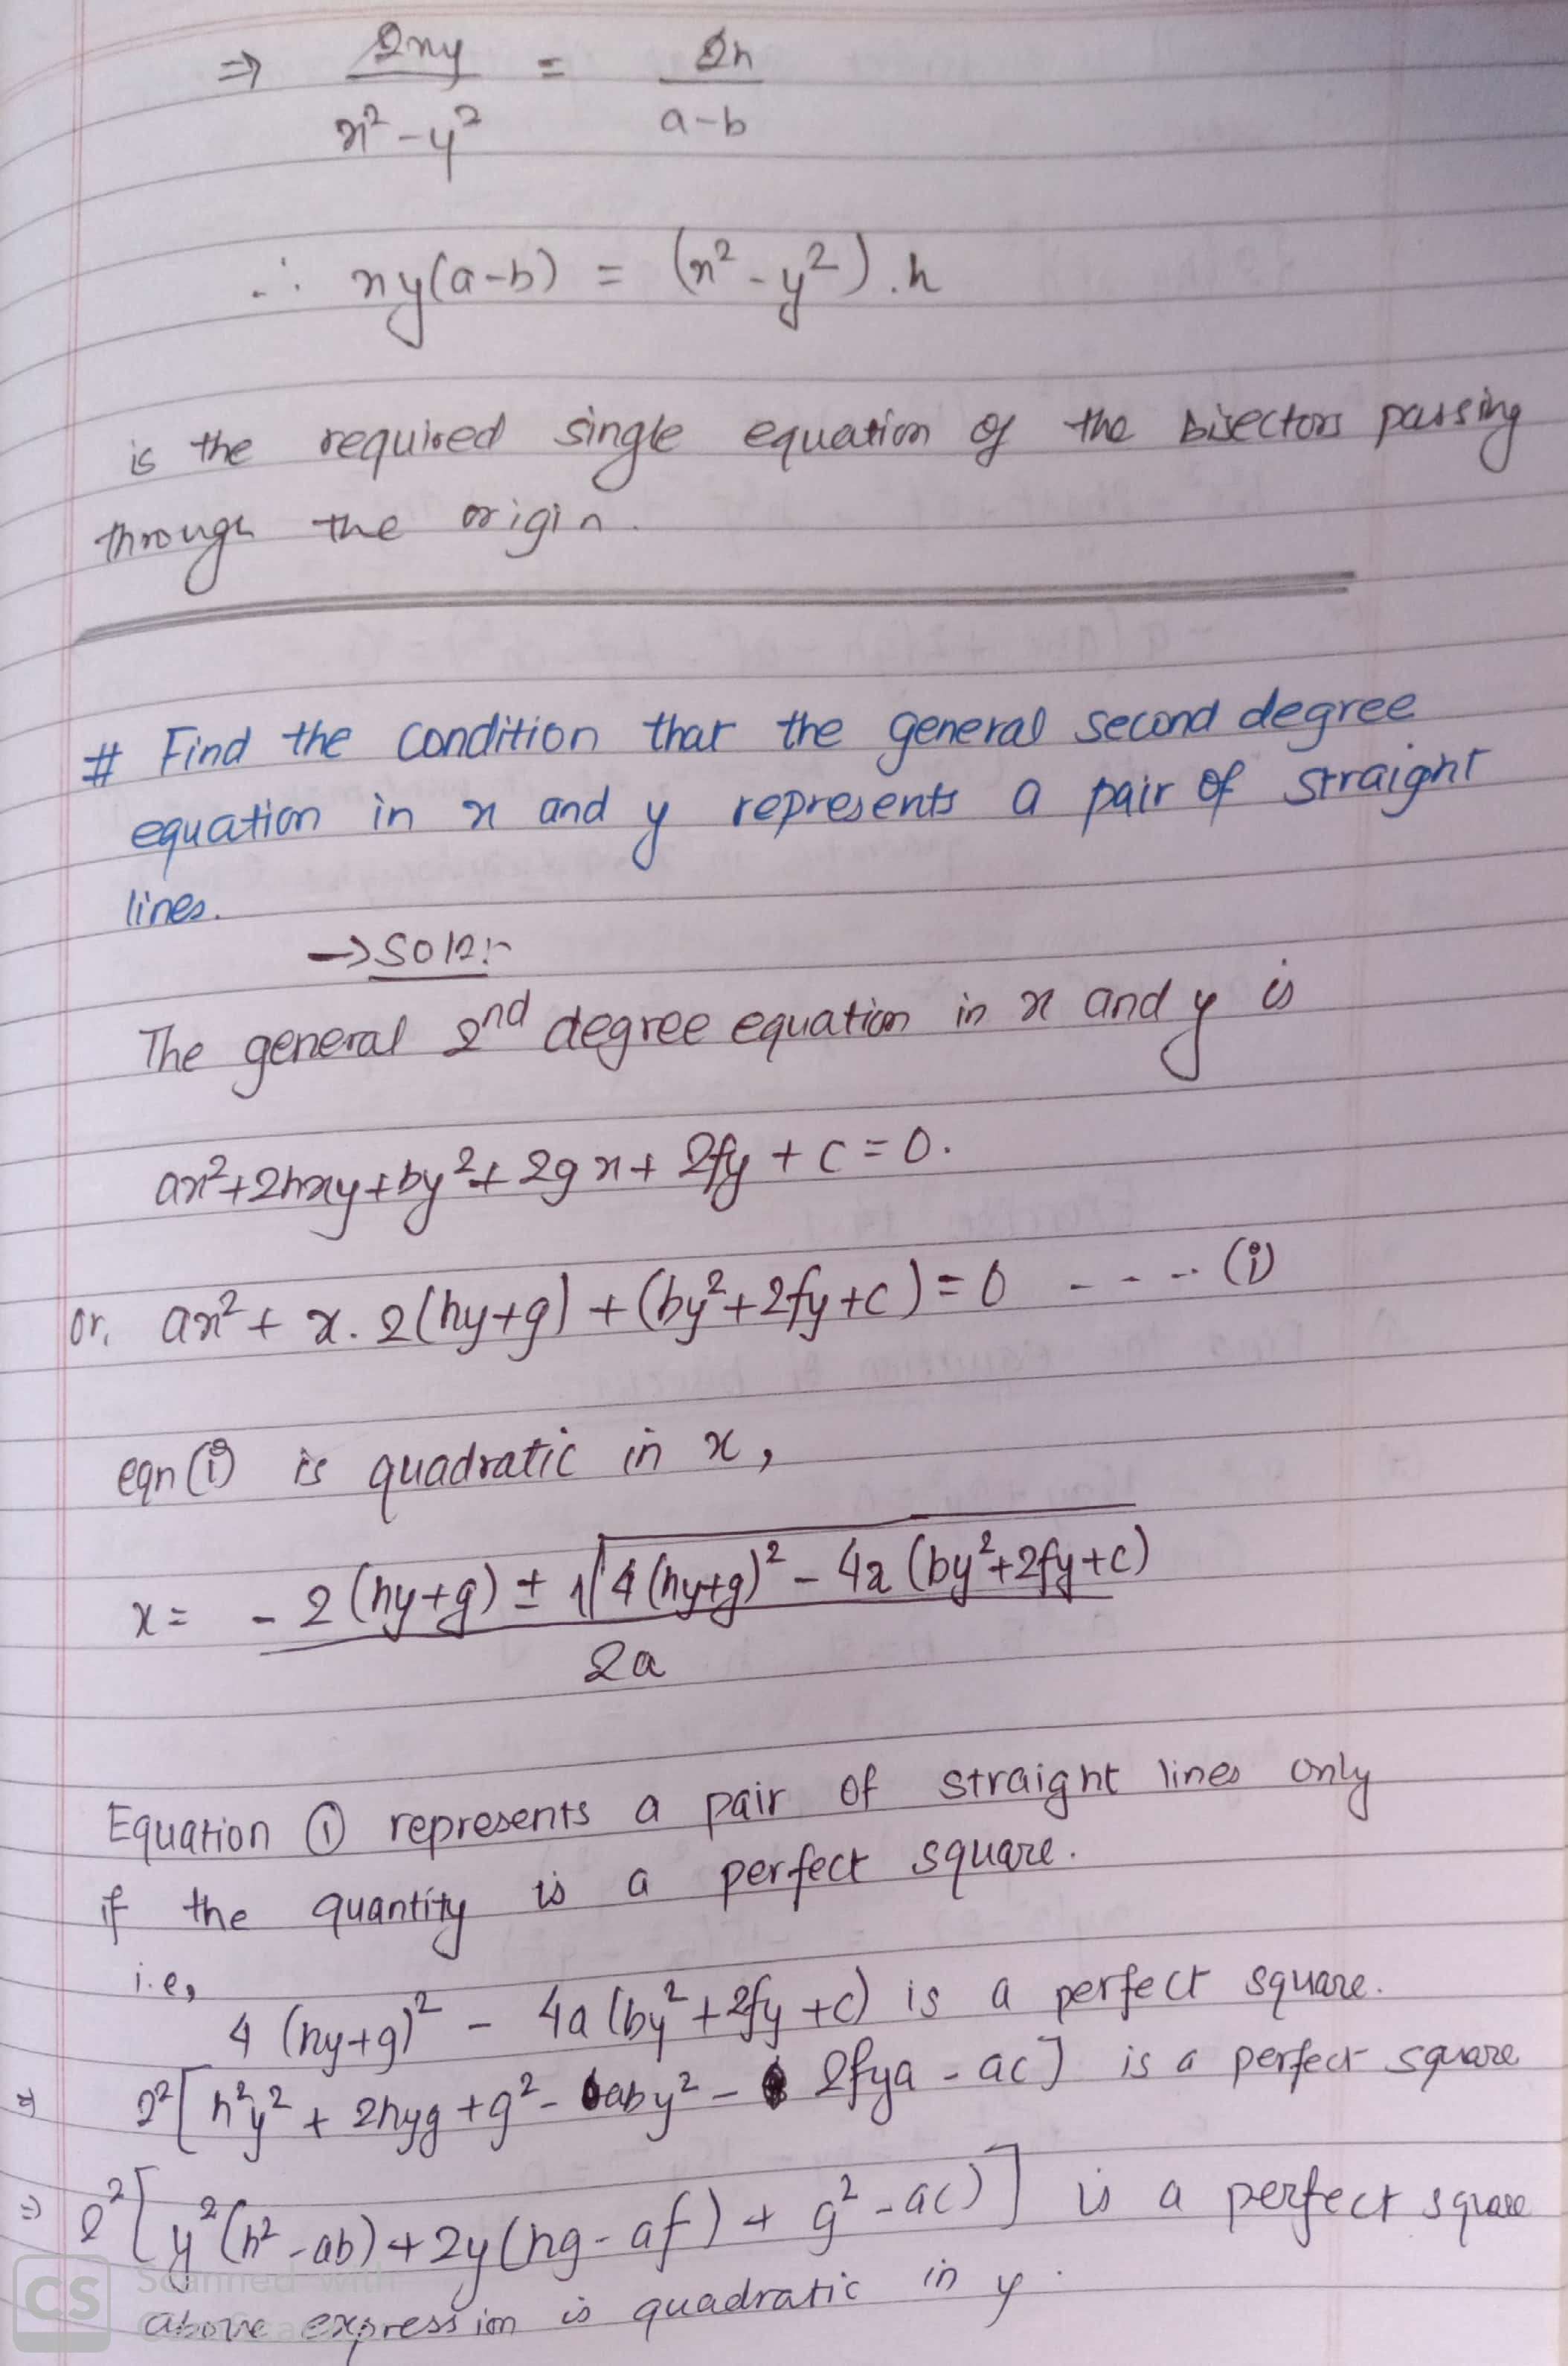 ⇒ 2xy / x² - y² = 2h / a-b
∴ xy(a-b) = (x² - y²).h
is the required single equation of the bisectors passing
through the origin.
# Find the condition that the general second degree
equation in x and y represents a pair of straight
lines.
→ Soln:-
The general 2nd degree equation in x and y is
ax²+2hxy+by²+2gx+2fy+c=0.
or, ax²+x.2(hy+g)+(by²+2fy+c)=0 ---- (i)
eqn (i) is quadratic in x,
x = -2(hy+g) ± √4(hy+g)² - 4a(by²+2fy+c) / 2a
Equation ① represents a pair of straight lines only
if the quantity is a perfect square.
i.e,
4(hy+g)² - 4a(by²+2fy+c) is a perfect square.
⇒ 2²[h²y² + 2hyg + g² - aby² - 2fya - ac] is a perfect square
⇒ 2²[y²(h²-ab)+2y(hg-af)+g²-ac)] is a perfect square
above expression is quadratic in y.
CS Scanned with